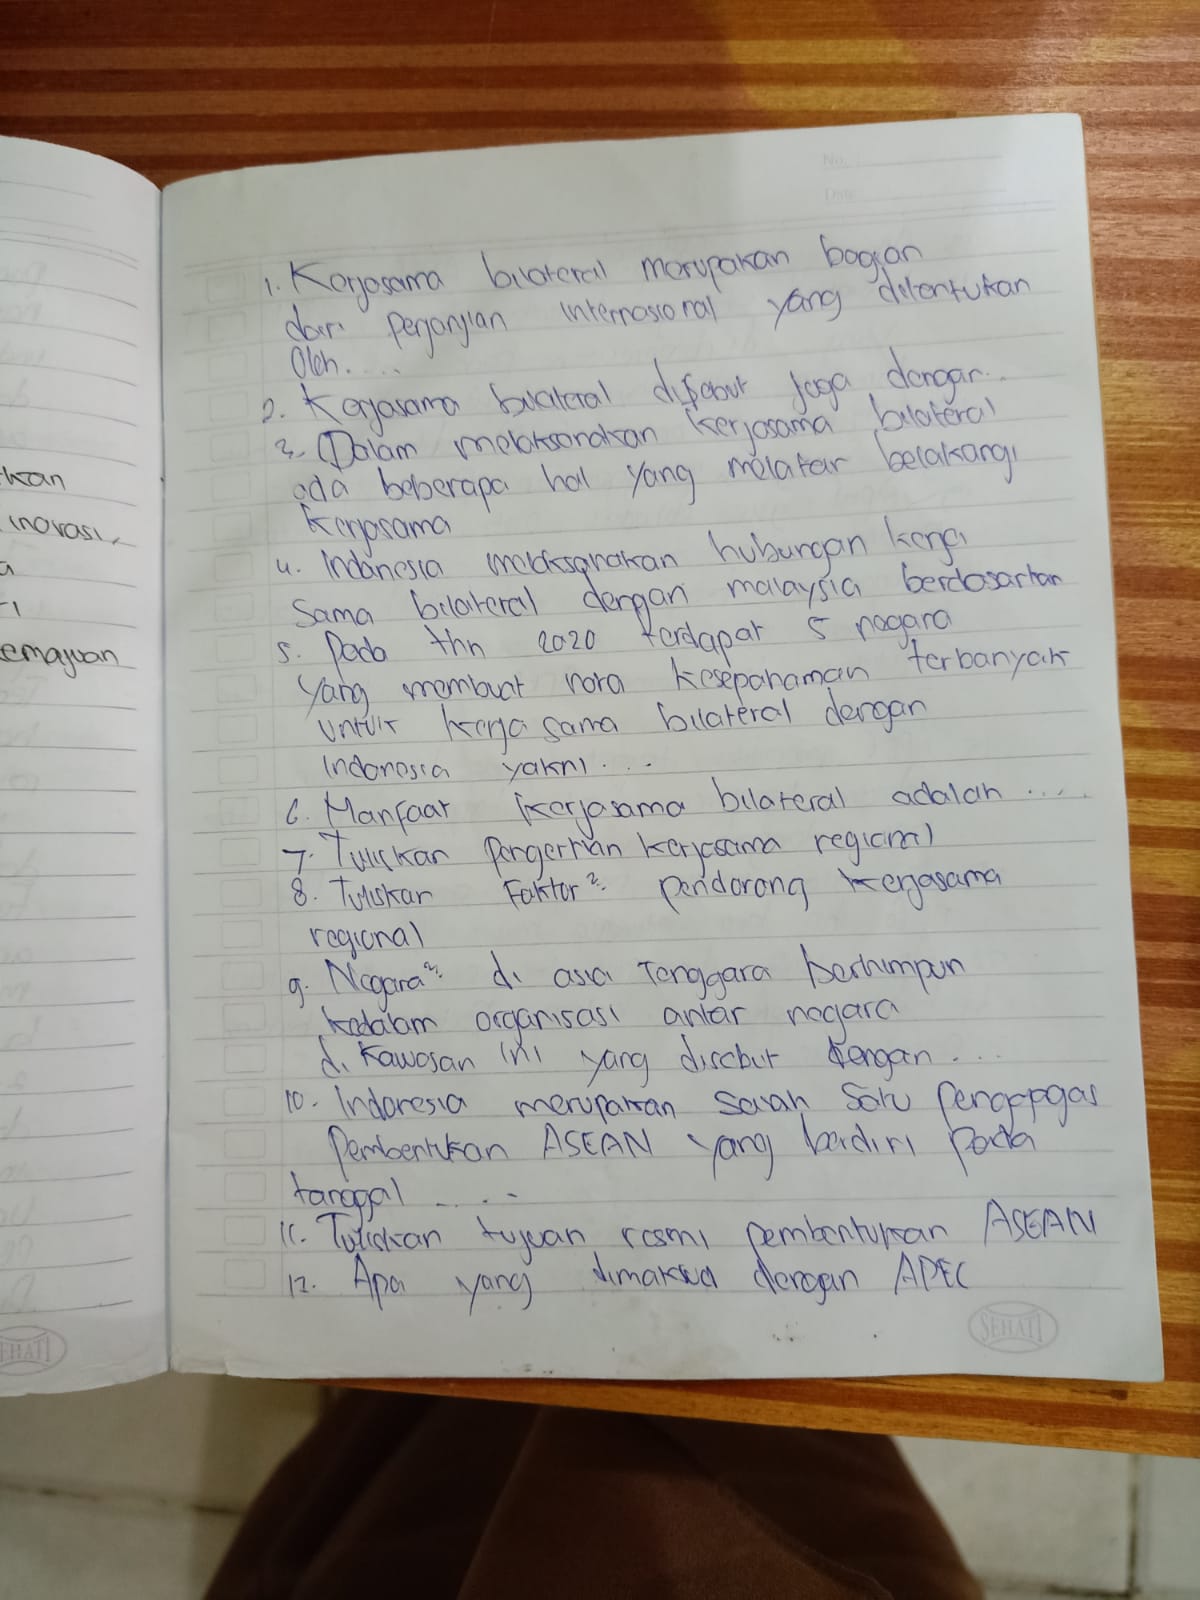 No. :
Date
1. Kerjasama bilateral merupakan bagian
dari perjanjian internasional yang ditentukan
Oleh....
2. Kerjasama bilateral disebut juga dengan...
3. Dalam melaksanakan kerjasama bilateral
ada beberapa hal yang melatar belakangi
kerjasama
4. Indonesia melaksanakan hubungan kerja
sama bilateral dengan malaysia berdasarkan
5. Pada thn 2020 terdapat 5 negara
yang membuat nota kesepahaman terbanyak
untuk kerja sama bilateral dengan
Indonesia yakni....
6. Manfaat kerjasama bilateral adalah ....
7. Tuliskan pengertian kerjasama regional
8. Tuliskan Faktor² pendorong kerjasama
regional
9. Negara² di asia Tenggara berhimpun
kedalam organisasi antar negara
di kawasan ini yang disebut dengan ...
10. Indonesia merupakan salah satu penggagas
Pembentukan ASEAN yang berdiri pada
tanggal ....
11. Tuliskan tujuan resmi pembentukan ASEAN
12. Apa yang dimaksud dengan APEC
SEHATI
kan
inovasi,
a
emajuan
EHATI